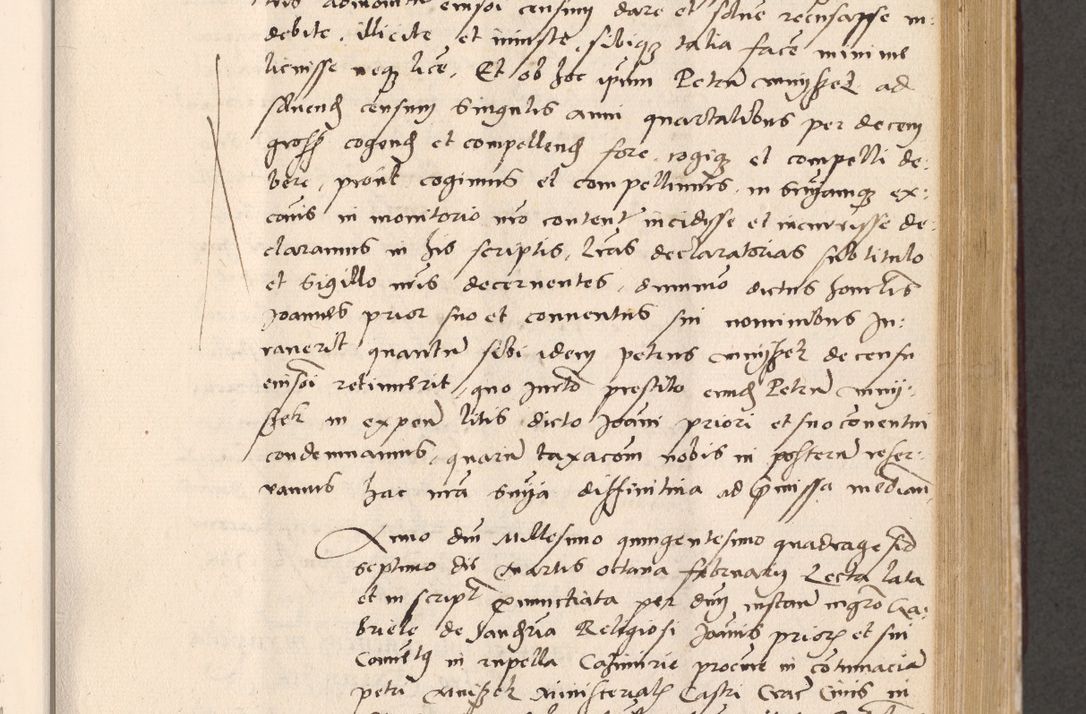 debite, illicite et iniuste, sibiq talia face minime
licuisse neq lice, Et ob hoc ipsum Petrum ad
soluend censum singulis anni quartalibus per decem
gross cogend et compellend fore, cogiq et compelli de:
bere, prout cogimus et compellimus, in snyamq ex:
cois in monitorio nro content incidisse et incurrisse de:
claramus in his scriptis, lras declaratorias sub titulo
et sigillo nris decernentes, dummo dictus honelis
Joannes prior suo et conuentus sui nominibus Ju:
rauerit quantu sibi idem petrus de censu
eiusoi retinuerit, quo Jurto prestito eund Petrum
in expen litis dicto Joanni priori et suo conuentui
condemnamus, quaru taxacom nobis in posteru reser:
uamus hac nra snya diffinitiua ad pmissa median
Anno dni Millesimo quingentesimo quadrage sio
septimo die Martis octaua february Lecta lata
et in script pnunctiata per dnm instan mgro Ga:
briele de Religiosi Joannis prioris et sui
Conuetq in rupella Cazimirie procure in cotumacia
petri Ministerialis Castri Crac Ciuis in